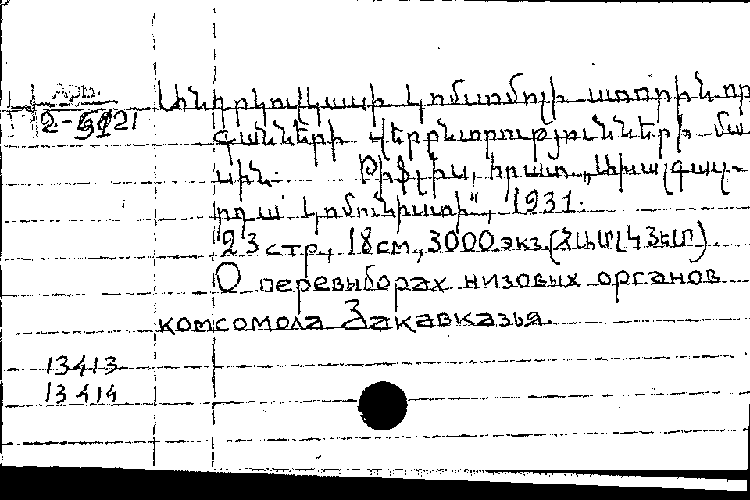 Арм.
2-5121
Անդրկովկասի կոմսոմոլի ստորին որ
գանների վերընտրությունների մա
սին. Թիֆլիս, հրատ.
կոմունիստի", 1931.
23 стр., 18 см., 3000 экз.
О перевыборах низовых органов
комсомола Закавказья.
13413
13414